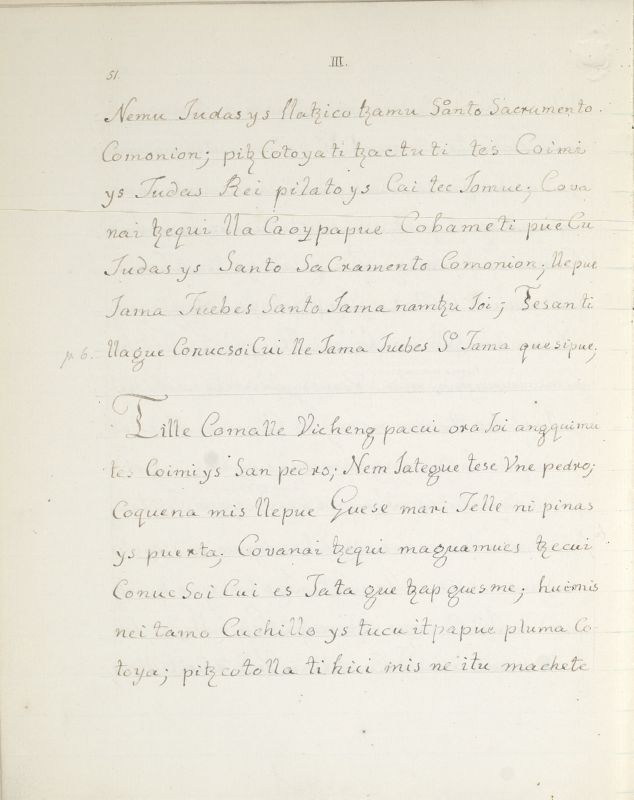 III.
51.
Nemu Iudas ys llatzico tzamu Santo Sacrumento
Comonion; pitz Cotoyati tzactuti tes Coimi
ys Iudas Rei pilato ys Cai tec Iomue; Cova
nai tzequi lla Caoypapue Cobameti pue Cu
Iudas ys Santo SaCramento Comonion; llepue
Iama Iuebes Santo Iama namtzu Ioi; Tesanti
p. 6. llague ConucsoiCui lle Iama Iuebes So Iama quesipue;
Tille Comalle Vicheng pacui ora Ioi angquimu
tes Coimi ys San pedro; Nem Iategue tese Vne pedro;
Coquena mis llepue Guese mari Ielle ni pinas
ys puerta; Covanai tzequi maguamues tzecui
Conuc Soi Cui es Iata gue tzap guesme; huimis
nei tamo Cuchillo ys tucu itpapue pluma Co-
toya; pitzcotolla ti hici mis ne itu machete